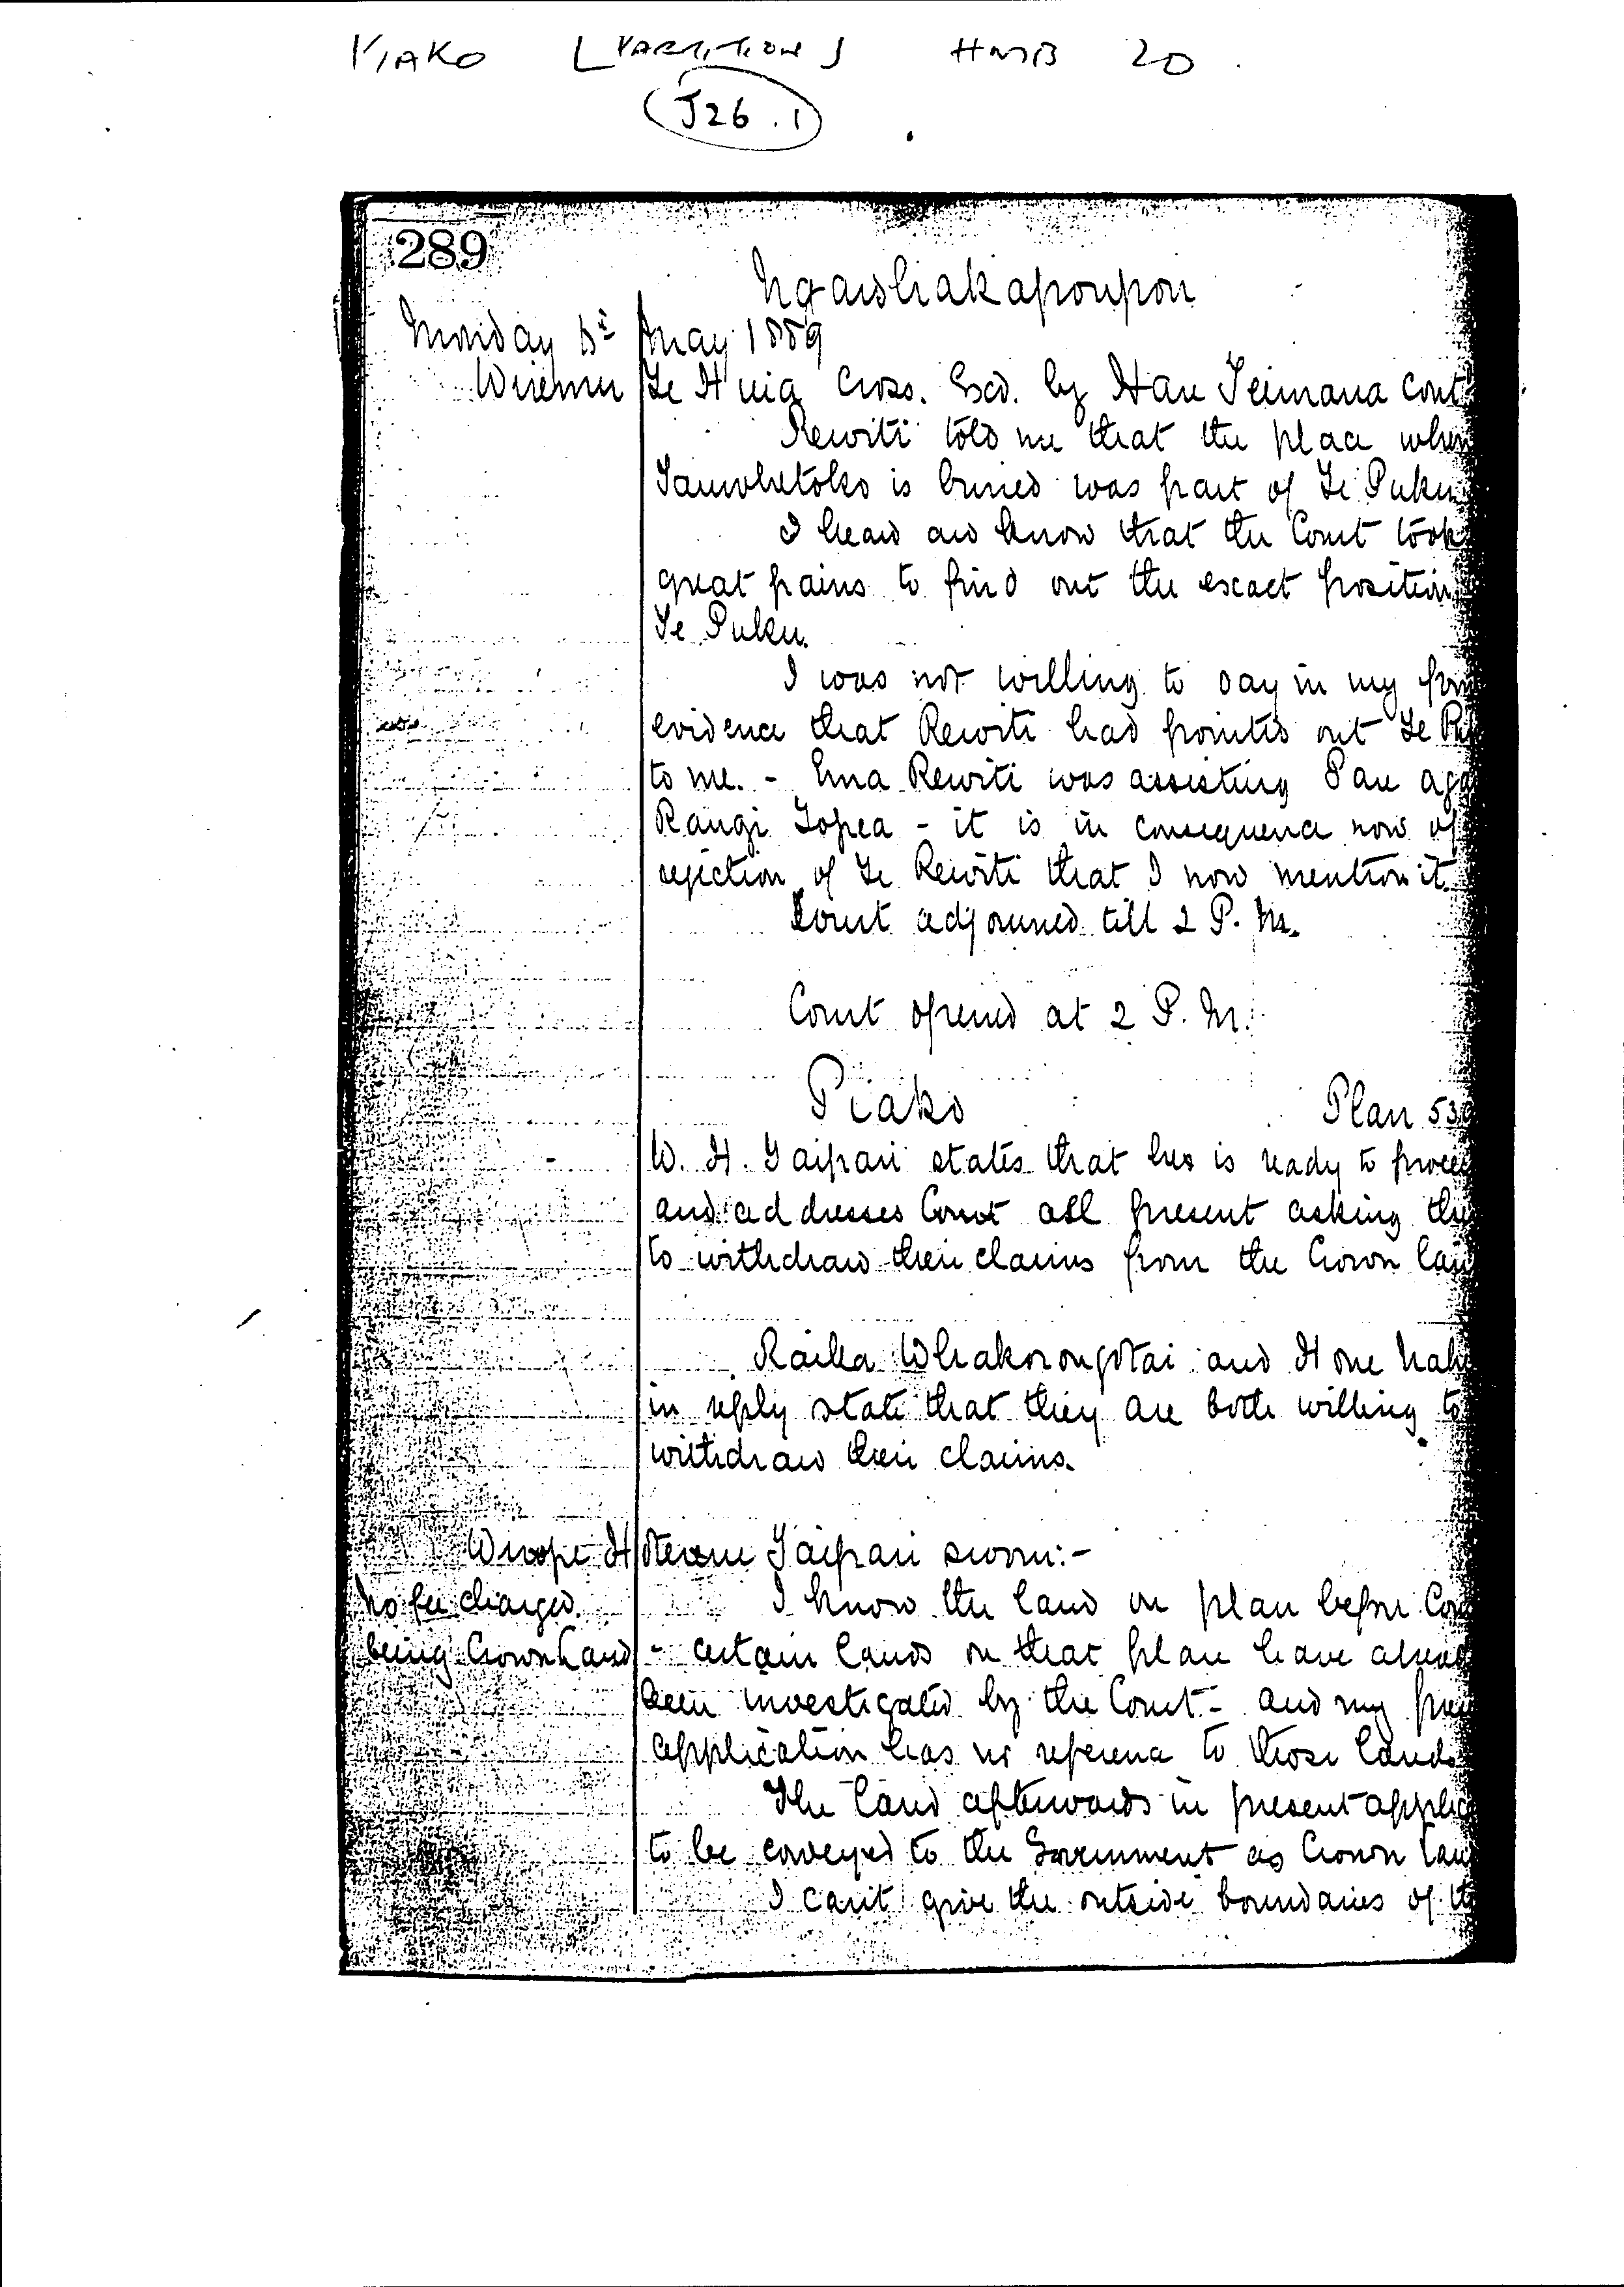 PIAKO [PARTITION] HMB 20.
J26.1
289
Ngawhakapoupou
Monday May 1889
Wiremu Te Huia Cross. Exd. by Hau Teimana Cont
Rewiti told me that the place when
Tauwhetoko is buried was part of Te Puku
I heard and know that the Court took
great pains to find out the exact position
Te Puku.
I was not willing to say in my
evidence that Rewiti had pointed out Te
to me. - Ema Rewiti was assisting Pau
Rangi Topea - it is in consequence now of
rejection of Te Rewiti that I now mention it
Court adjourned till 2 P.M.
Court opened at 2 P.M.
Piako Plan 53
W. H. Taipari states that he is ready to
and addresses all present asking
to withdraw their claims from the Crown
Raika Whakarongotai and Hone
in reply state that they are both willing to
withdraw their claims.
Wirope Hoterene Taipari sworn:-
No fee charged. I know the land on plan before
being Crown Land - certain lands on that plan have
been investigated by the Court - and my
application has no reference to those lands
The land afterwards in present
to be conveyed to the Government as Crown
I can't give the outside boundaries of